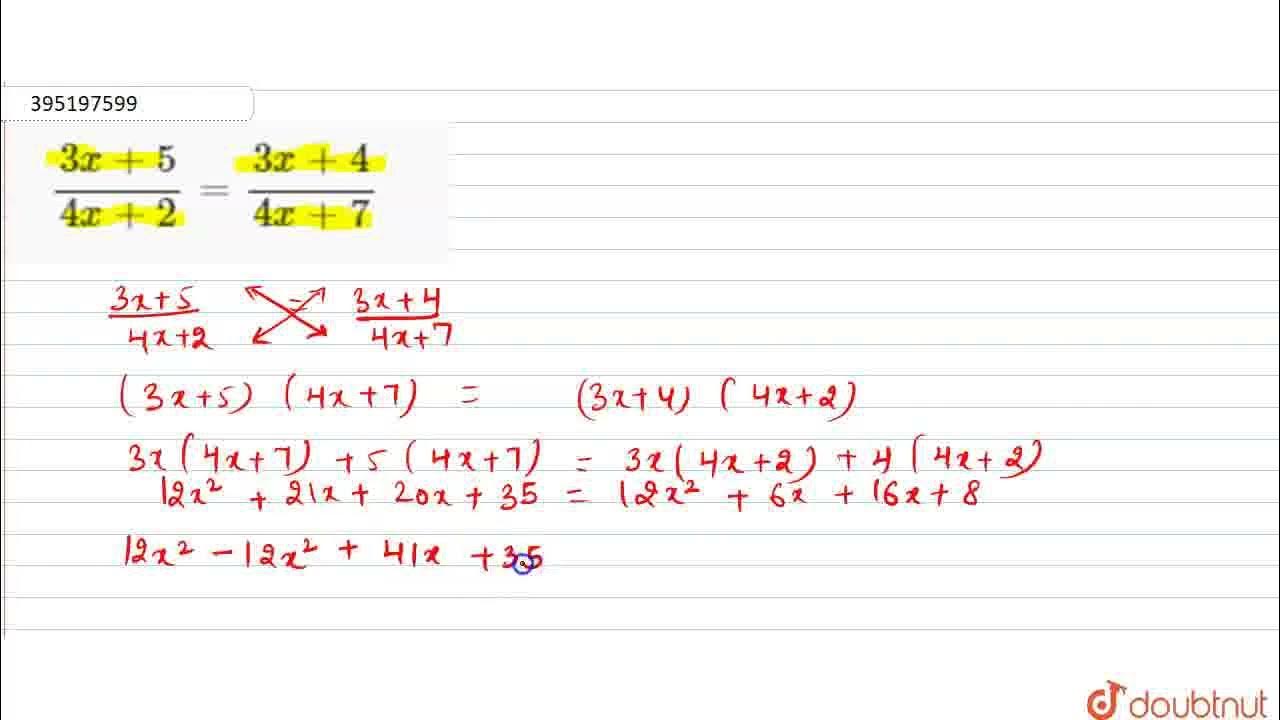 395197599
3x + 5 / 4x + 2 = 3x + 4 / 4x + 7
3x+5 / 4x+2 = 3x+4 / 4x+7
(3x+5) (4x+7) = (3x+4) (4x+2)
3x(4x+7) +5 (4x+7) = 3x(4x+2) + 4 (4x+2)
12x² + 21x + 20x + 35 = 12x² + 6x + 16x + 8
12x² - 12x² + 41x + 35
doubtnut